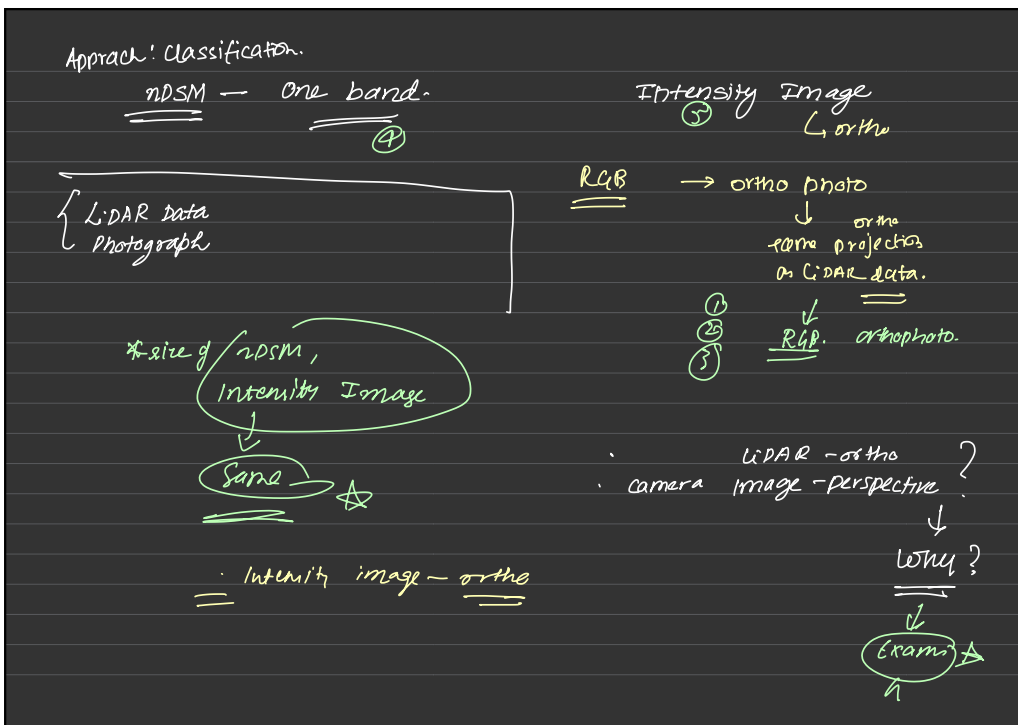 Apprach: Classification.
nDSM — One band.
④
LiDAR Data
Photograph
* size of nDSM,
Intensity Image
Same
Intensity image — ortho
Intensity Image
⑤
↳ ortho
RGB → ortho photo
↓
ortho
same projection
as LiDAR data.
↓
①
②
③
RGB. orthophoto.
· LiDAR - ortho
· camera image - perspective ?
↓
Why ?
↓
Exams